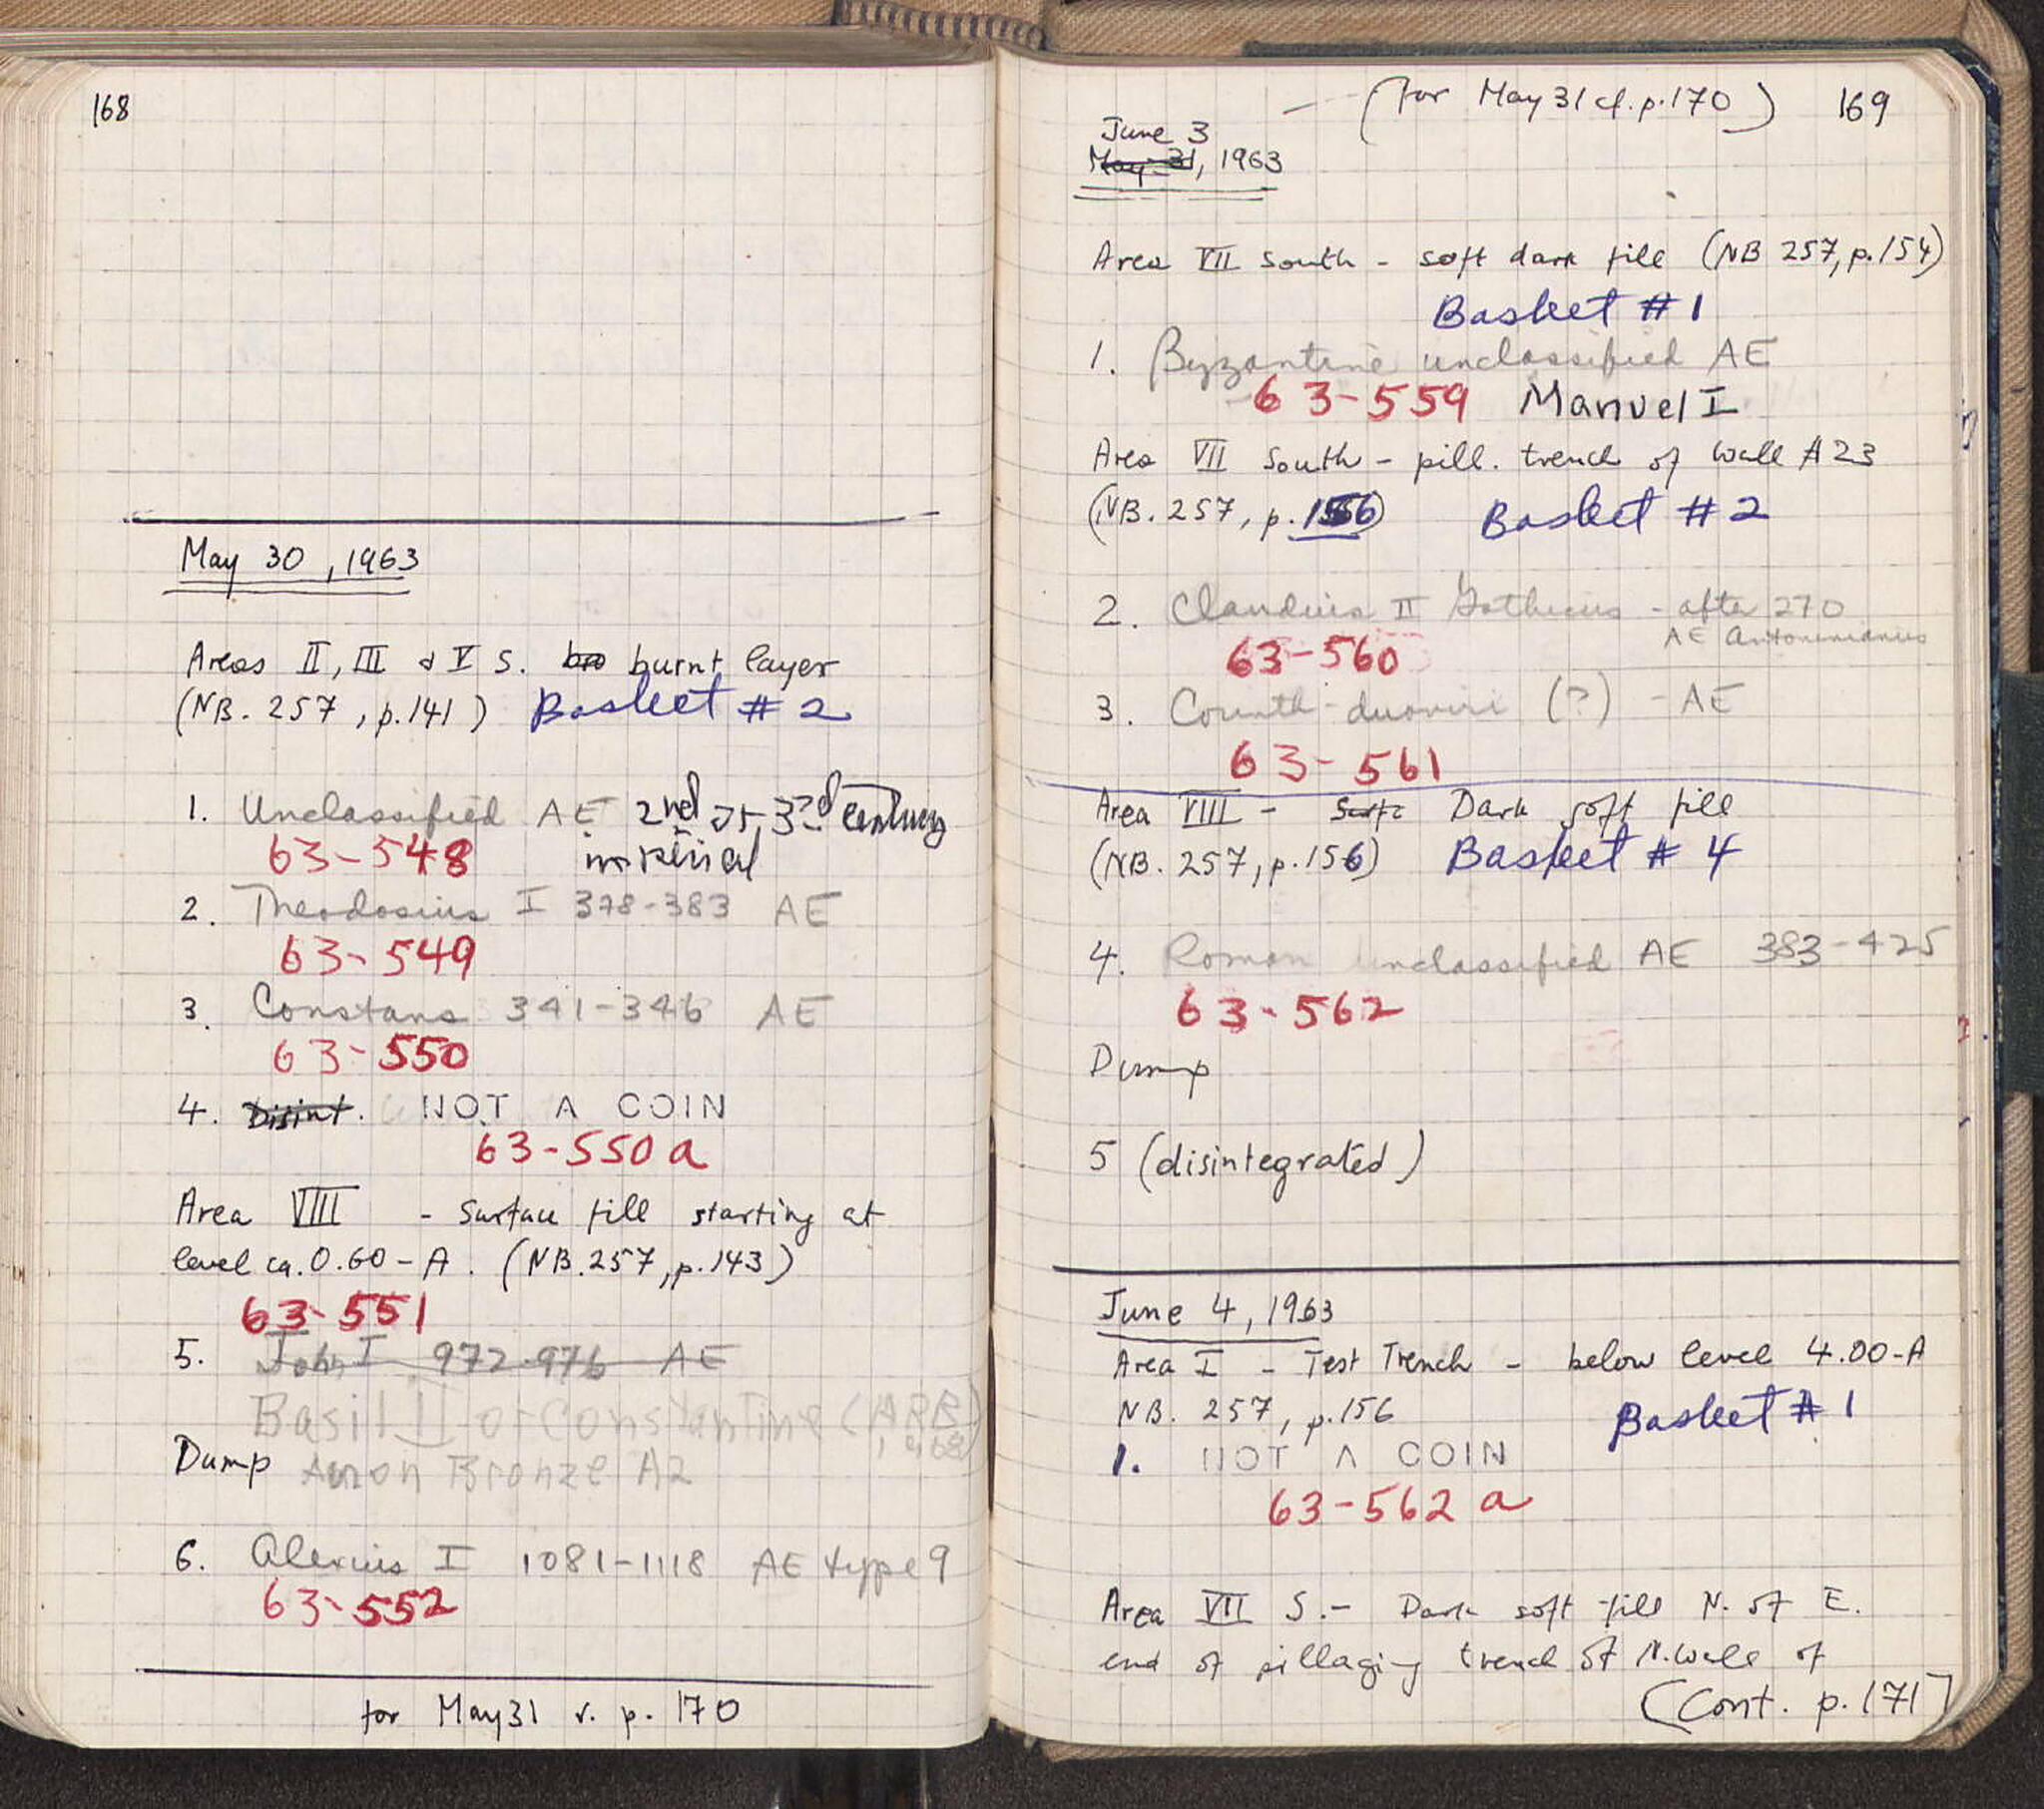 168
May 30, 1963
Areas II, III & V S. bro burnt layer
(NB. 257, p.141) Basket # 2
1. Unclassified AE 2nd or 3rd century
63-548 imperial
2. Theodosius I 378-383 AE
63-549
3. Constans 341-346 AE
63-550
4. Disint. NOT A COIN
63-550a
Area VIII - Surface fill starting at
level ca. 0.60-A. (NB. 257, p.143)
63-551
5. John I 972-976 AE
Basil II or Constantine (ARB)
Dump Anon Bronze A2
6. Alexius I 1081-1118 AE type 9
63-552
for May 31 v. p. 170
(for May 31 cf. p.170) 169
June 3
May 31, 1963
Area VII South - soft dark fill (NB 257, p.154)
Basket #1
1. Byzantine unclassified AE
63-559 Manuel I
Area VII South - pill. trench of wall #23
(NB. 257, p.156) Basket #2
2. Claudius II Gothicus - after 270
AE Antoninianus
63-560
3. Corinth duoviri (?) - AE
63-561
Area VIII - Dark soft fill
(NB. 257, p.156) Basket # 4
4. Roman unclassified AE 383-425
63-562
Dump
5 (disintegrated)
June 4, 1963
Area I - Test Trench - below level 4.00-A
NB. 257, p.156 Basket # 1
1. NOT A COIN
63-562 a
Area VII S. - Dark soft fill N. of E.
end of pillaging trench of N. wall of
(Cont. p.171)